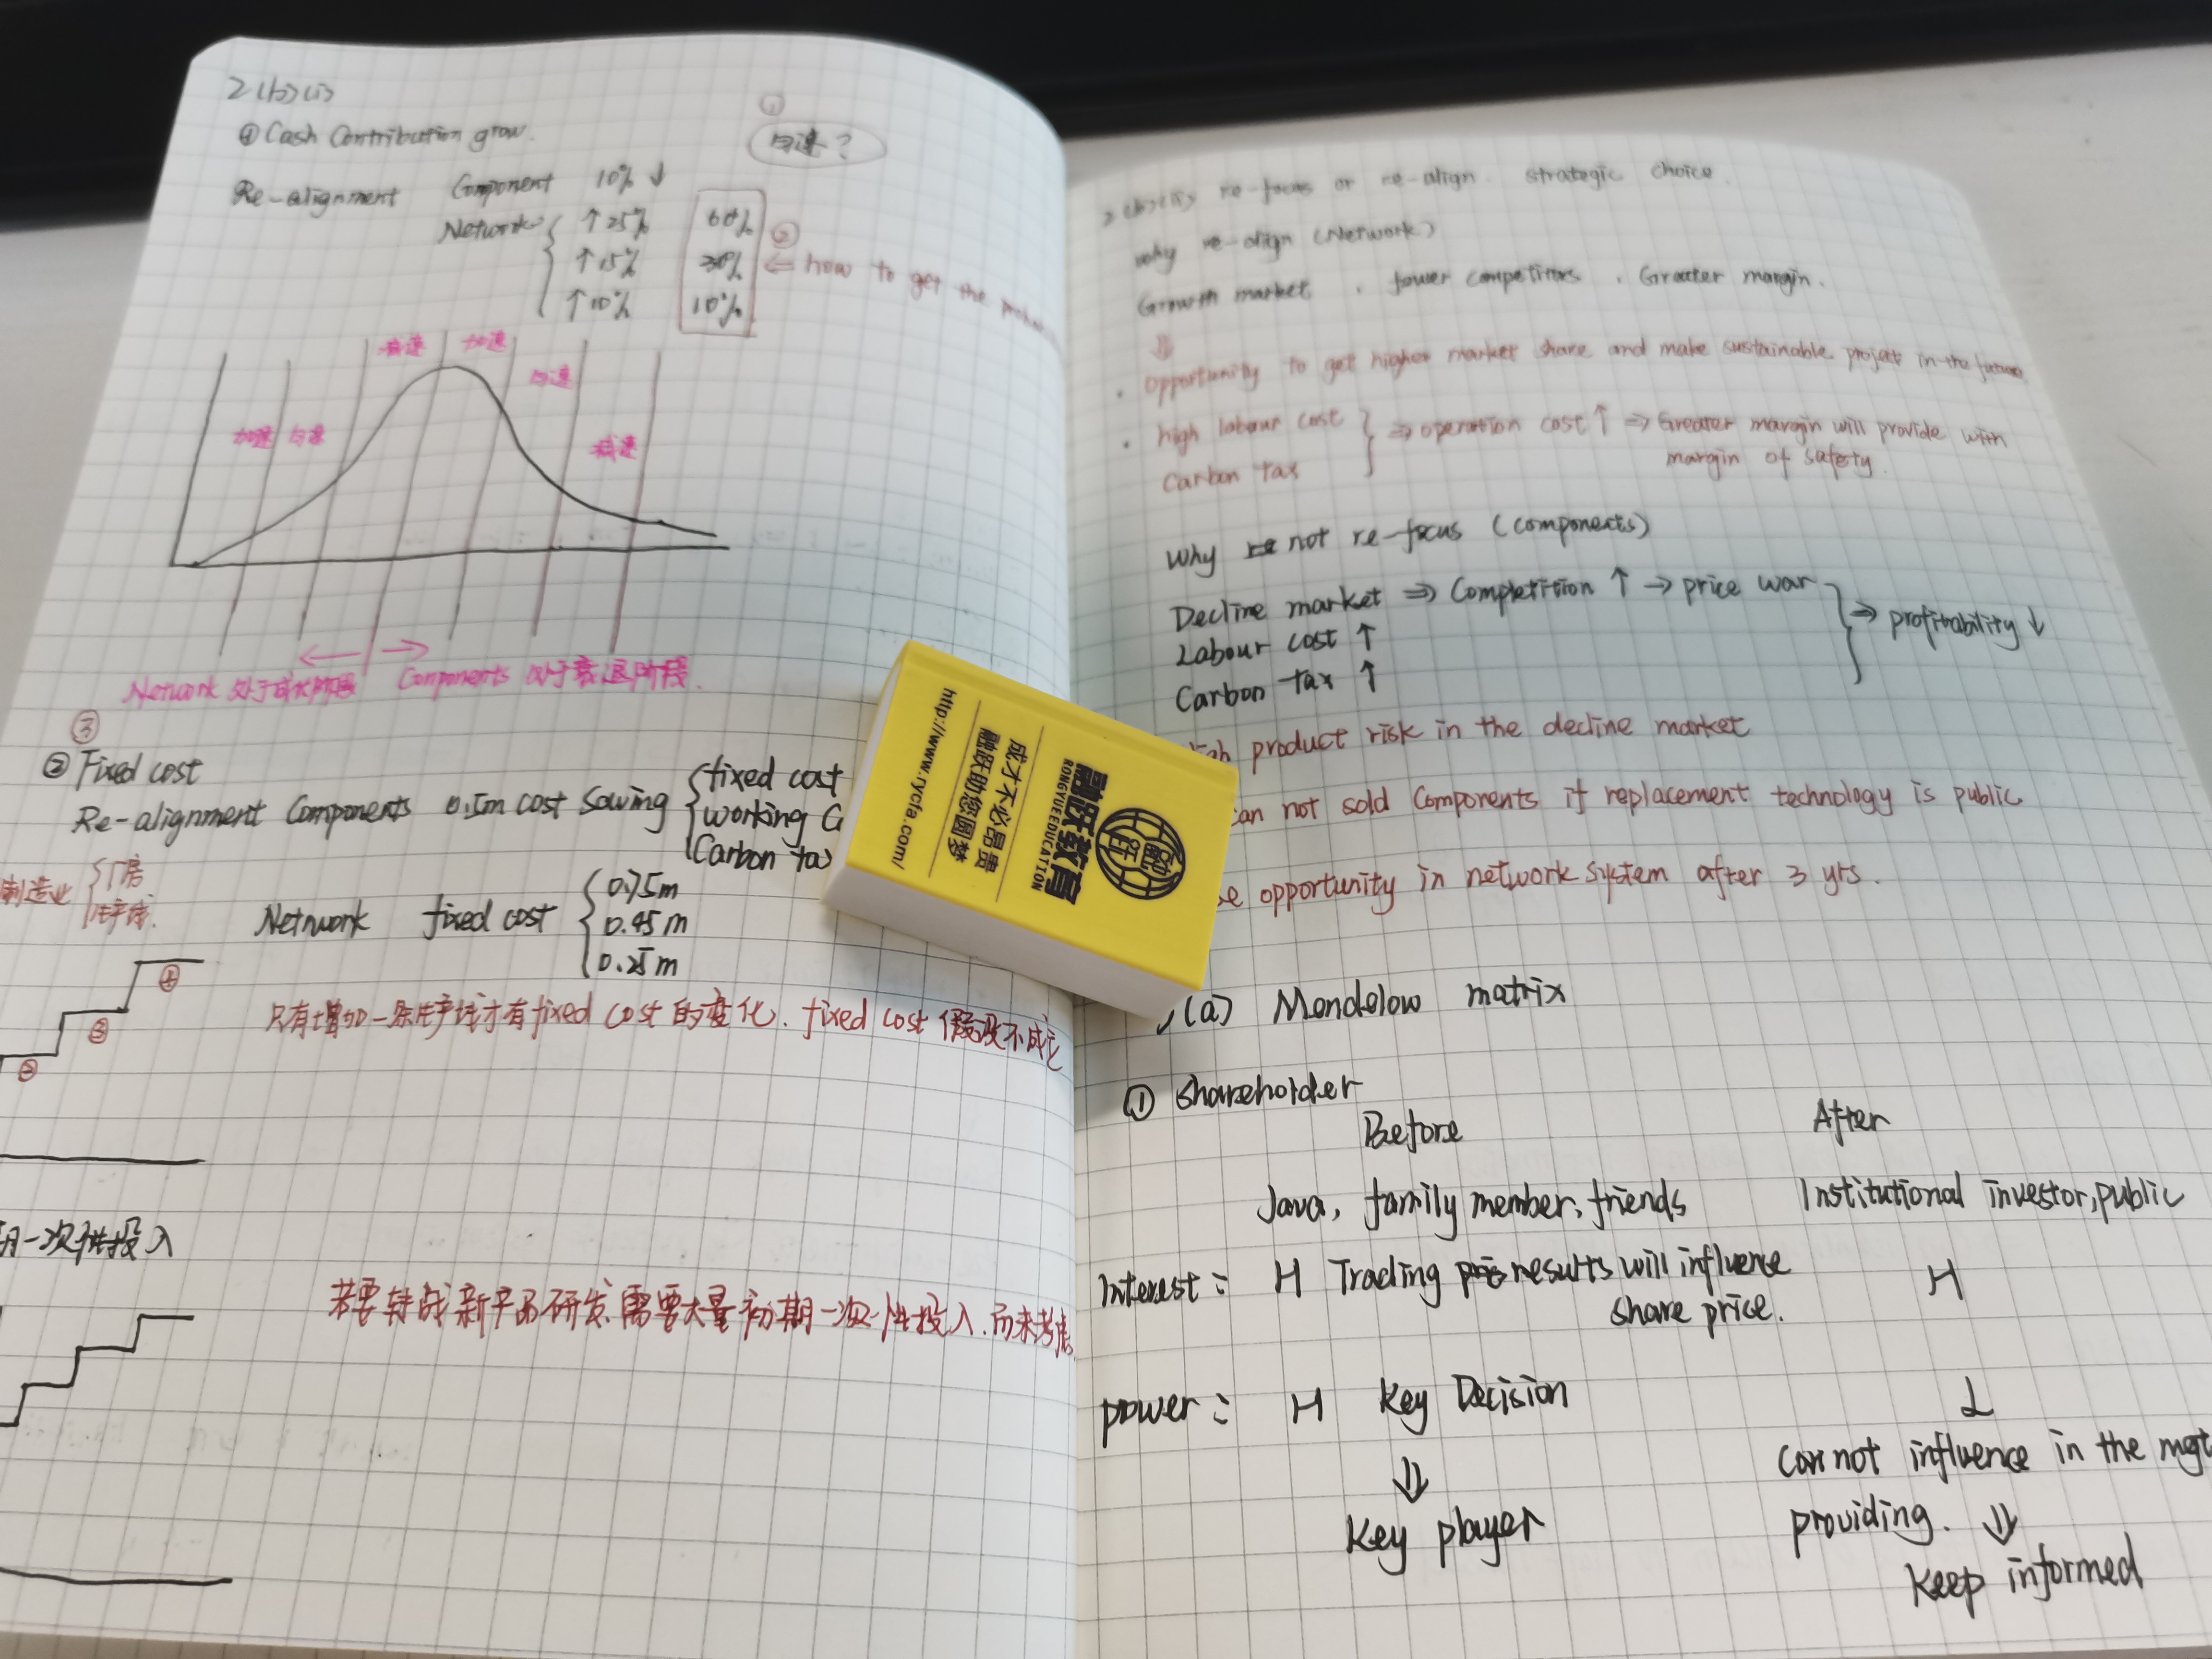 2(b)(i)
① Cash Contribution grow.
①
匀速?
Re-alignment Component 10% ↓
Network { ↑25% 60%
↑15% 30%
↑10% 10%
② ⇐ how to get the
减速 加速
匀速
加速 匀速
减速
Network 处于成长阶段 Components 处于衰退阶段.
③
② Fixed cost
Re-alignment Components 0.5m cost saving { fixed cost
working
Carbon ta
制造业 { 厂房
生产线.
Network fixed cost { 0.75m
0.45m
0.25m
④
③
②
只有增加一条生产线才有fixed cost的变化. fixed cost 假设不成立
期一次性投入
若要转战新产品研发,需要大量初期一次性投入.而未考虑
2(b)(ii) re-focus or re-align. strategic choice.
why re-align (Network)
Growth market , fewer competitors , Greater margin.
⇓
· opportunity to get higher market share and make sustainable project in the future
· high labour cost
Carbon tax } ⇒ operation cost ↑ ⇒ Greater margin will provide with
margin of safety.
Why not re-focus (components)
Decline market ⇒ Competition ↑ → price war
Labour cost ↑
Carbon tax ↑ } ⇒ profitability ↓
product risk in the decline market
can not sold components if replacement technology is public
opportunity in network system after 3 yrs.
(a) Mendelow matrix
① shareholder
Before After
Java, family member, friends Institutional investor, public
Interest : H Trading results will influence H
share price.
power : H key Decision L
⇓ Can not influence in the mgt
providing. ⇓
key player keep informed
融跃教育
RONGYUEEDUCATION
成才不必昂贵
融跃助您圆梦
http://www.rycfa.com/